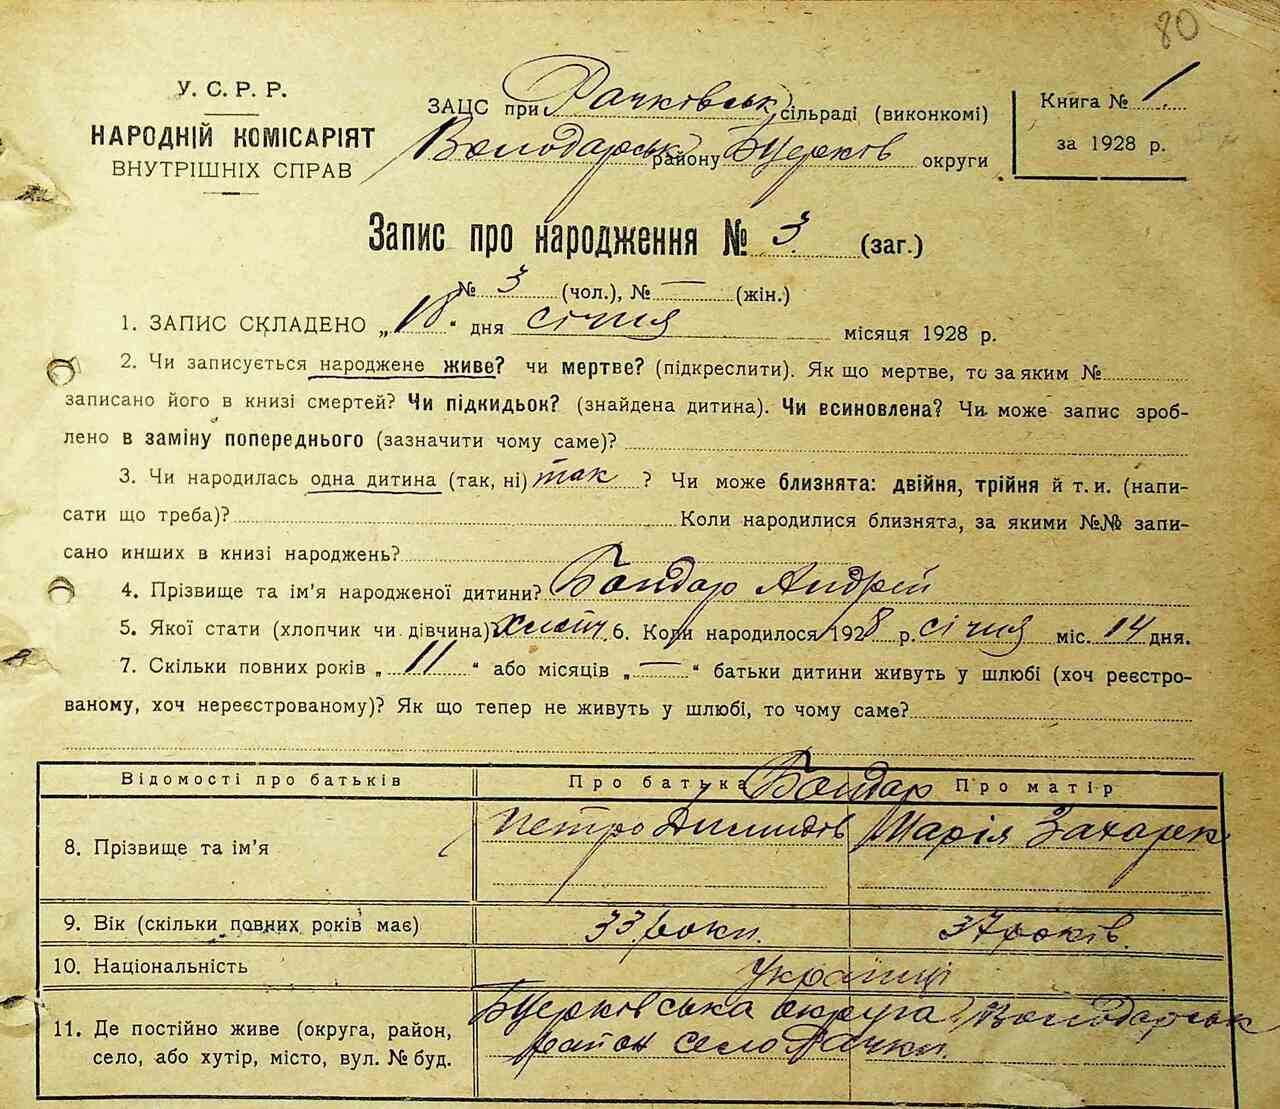 80
У. С. Р. Р.
НАРОДНІЙ КОМІСАРІЯТ
ВНУТРІШНІХ СПРАВ
ЗАЦС при Рачківськ сільраді (виконкомі)
Володарськ району БЦерків округи
Книга № 1
за 1928 р.
Запис про народження № 3 (заг.)
№ 3 (чол.), № — (жін.)
1. ЗАПИС СКЛАДЕНО „18“ дня січня місяця 1928 р.
2. Чи записується народжене живе? чи мертве? (підкреслити). Як що мертве, то за яким №
записано його в книзі смертей? Чи підкидьок? (знайдена дитина). Чи всиновлена? Чи може запис зроб-
лено в заміну попереднього (зазначити чому саме)?
3. Чи народилась одна дитина (так, ні) так ? Чи може близнята: двійня, трійня й т. и. (напи-
сати що треба)? Коли народилися близнята, за якими №№ запи-
сано инших в книзі народжень?
4. Прізвище та ім’я народженої дитини? Бондар Андрей
5. Якої стати (хлопчик чи дівчина) хлопч 6. Коли народилося 1928 р. січня міс. 14 дня.
7. Скільки повних років „11“ або місяців „—“ батьки дитини живуть у шлюбі (хоч реєстро-
ваному, хоч нереєстрованому)? Як що тепер не живуть у шлюбі, то чому саме?
Відомості про батьків Про батька Про матір
Бондар
8. Прізвище та ім’я Петро Марія Захарек
9. Вік (скільки повних років має) 33 роки. 37 років.
10. Національність Українці
11. Де постійно живе (округа, район, БЦерківська округа Володарськ
село, або хутір, місто, вул. № буд. район село Рачки.